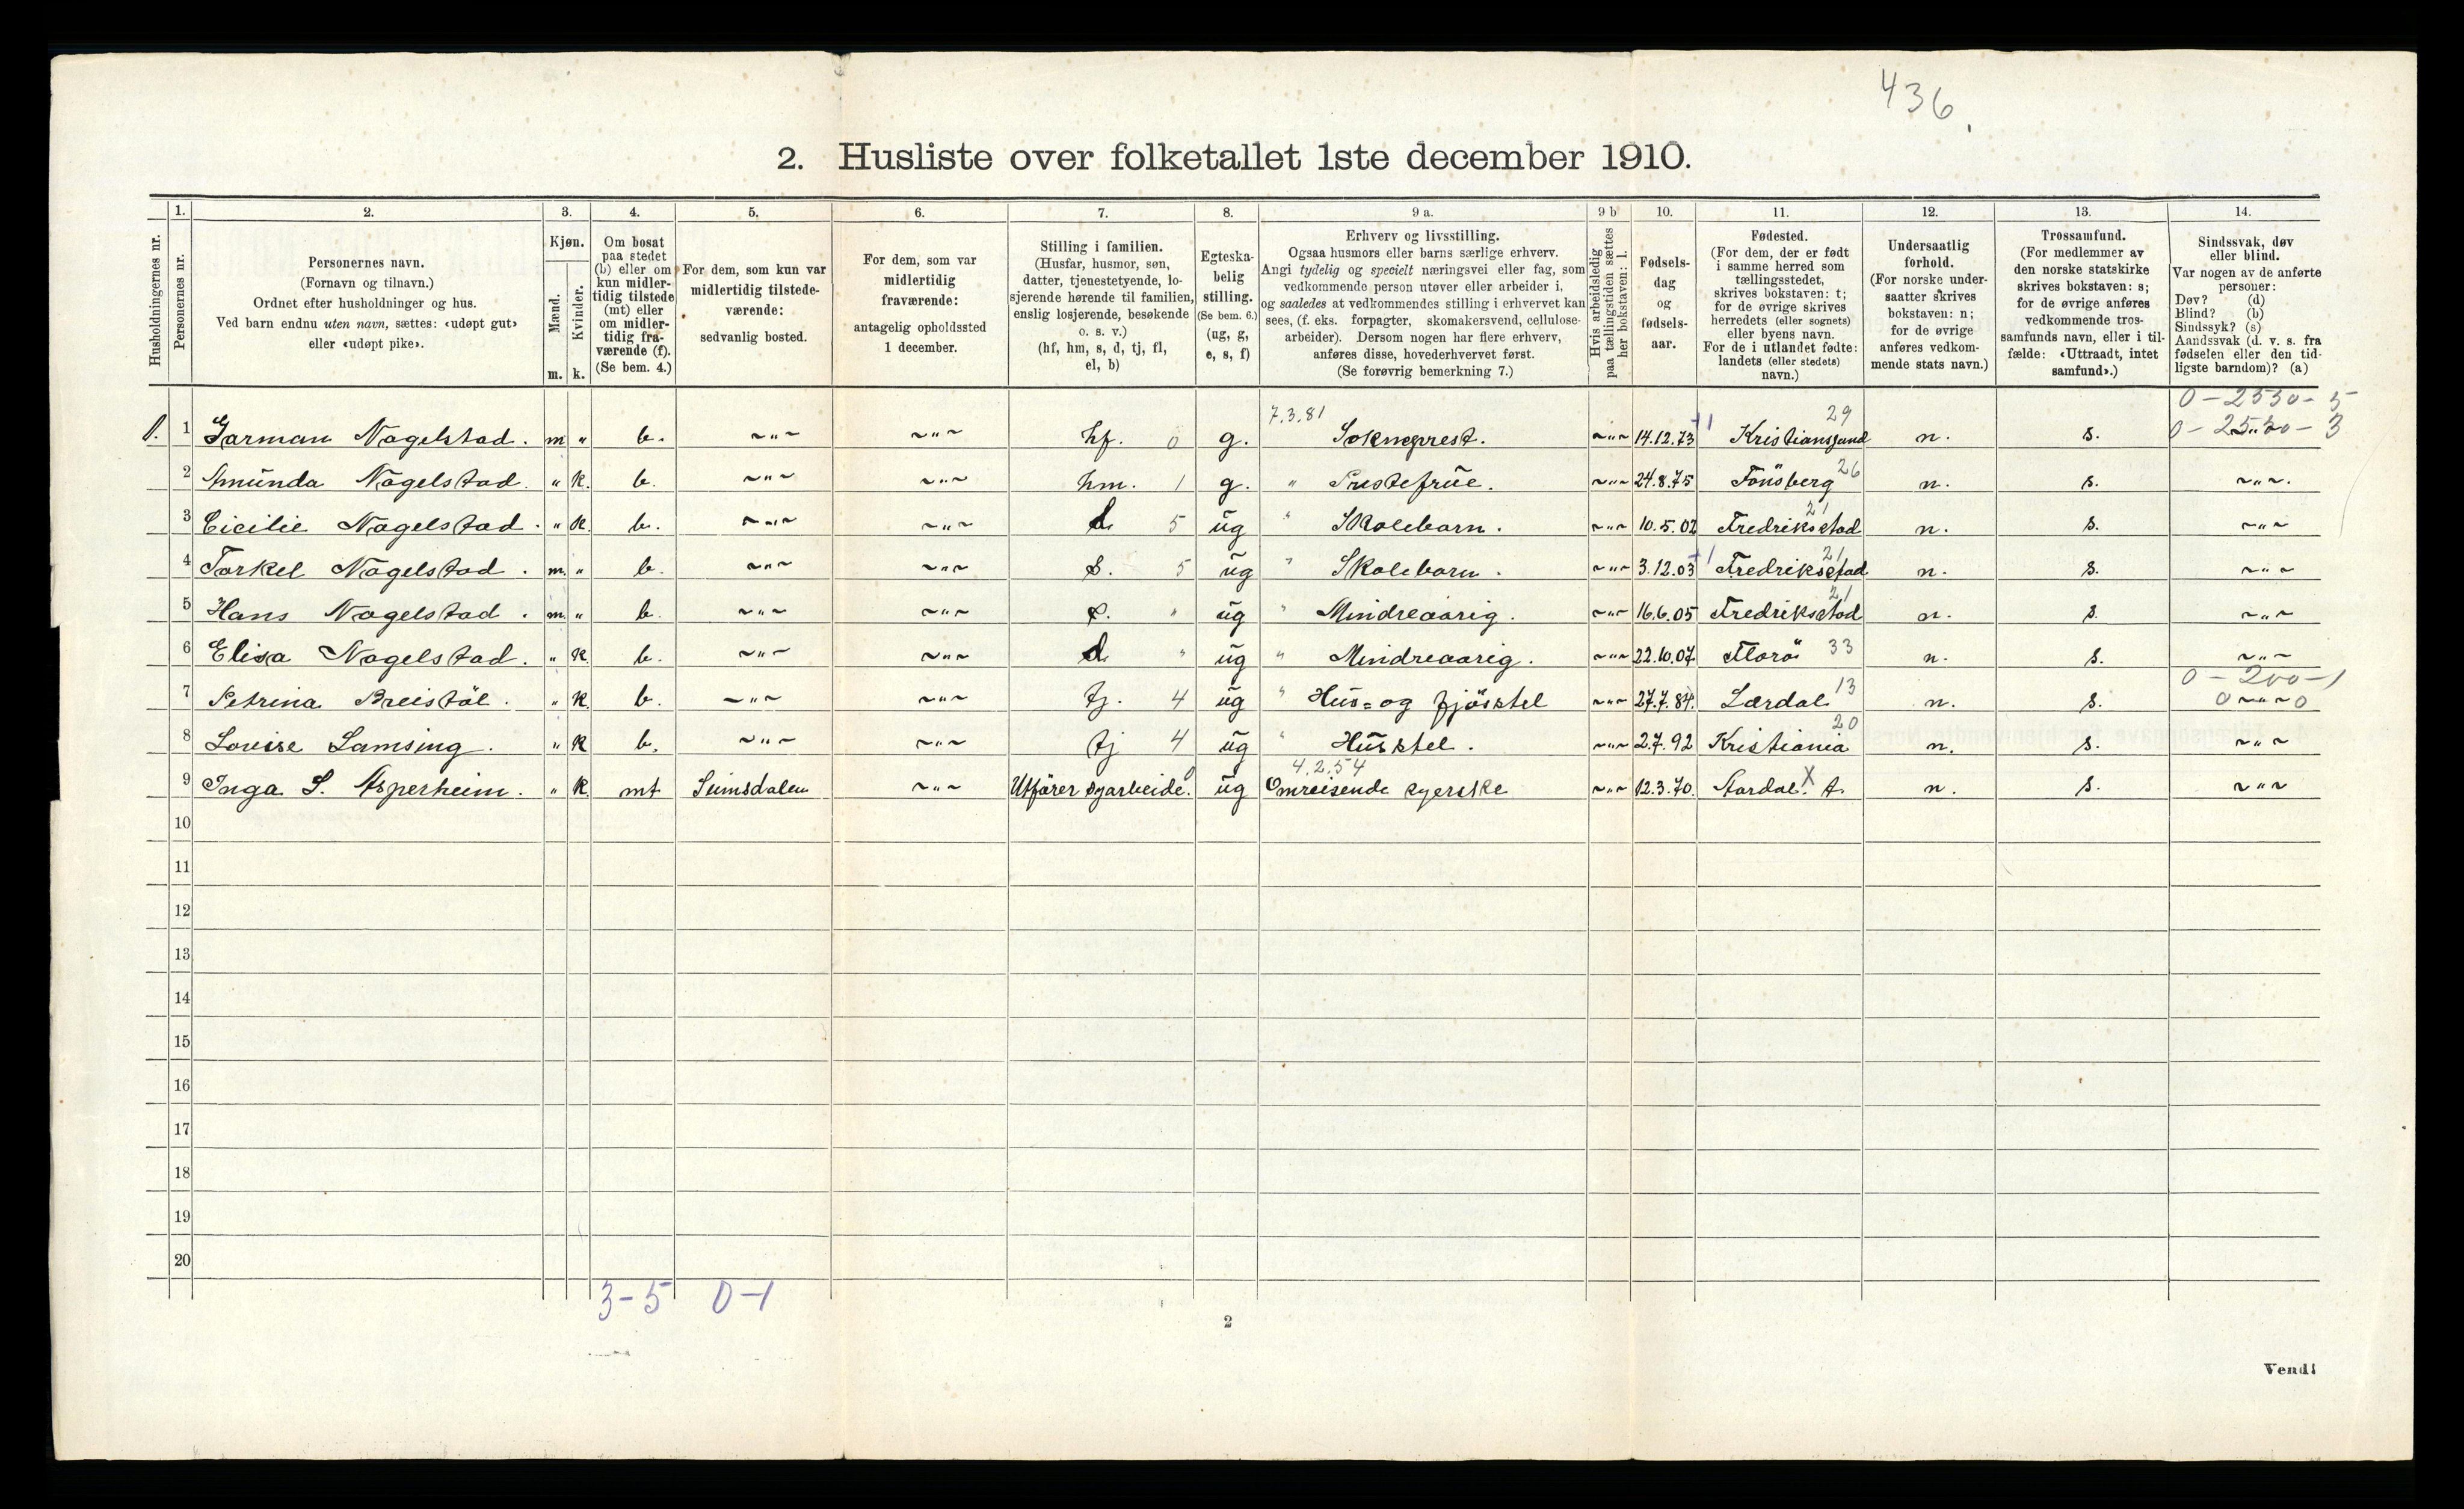 436.
2. Husliste over folketallet 1ste december 1910.
Husholdningernes nr.
1. Personernes nr.
2. Personernes navn.
(Fornavn og tilnavn.)
Ordnet efter husholdninger og hus.
Ved barn endnu uten navn, sættes: «udøpt gut»
eller «udøpt pike».
3. Kjøn.
Mænd. m.
Kvinder. k.
4. Om bosat
paa stedet
(b) eller om
kun midler-
tidig tilstede
(mt) eller
om midler-
tidig fra-
værende (f).
(Se bem. 4.)
5. For dem, som kun var
midlertidig tilstede-
værende:
sedvanlig bosted.
6. For dem, som var
midlertidig
fraværende:
antagelig opholdssted
1 december.
7. Stilling i familien.
(Husfar, husmor, søn,
datter, tjenestetyende, lo-
sjerende hørende til familien,
enslig losjerende, besøkende
o. s. v.)
(hf, hm, s, d, tj, fl,
el, b)
8. Egteska-
belig
stilling.
(Se bem. 6.)
(ug, g,
e, s, f)
9 a. Erhverv og livsstilling.
Ogsaa husmors eller barns særlige erhverv.
Angi tydelig og specielt næringsvei eller fag, som
vedkommende person utøver eller arbeider i,
og saaledes at vedkommendes stilling i erhvervet kan
sees, (f. eks. forpagter, skomakersvend, cellulose-
arbeider). Dersom nogen har flere erhverv,
anføres disse, hovederhvervet først.
(Se forøvrig bemerkning 7.)
9 b Hvis arbeidsledig
paa tællingstiden sættes
her bokstaven: l.
10. Fødsels-
dag
og
fødsels-
aar.
11. Fødested.
(For dem, der er født
i samme herred som
tællingsstedet,
skrives bokstaven: t;
for de øvrige skrives
herredets (eller sognets)
eller byens navn.
For de i utlandet fødte:
landets (eller stedets)
navn.)
12. Undersaatlig
forhold.
(For norske under-
saatter skrives
bokstaven: n;
for de øvrige
anføres vedkom-
mende stats navn.)
13. Trossamfund.
(For medlemmer av
den norske statskirke
skrives bokstaven: s;
for de øvrige anføres
vedkommende tros-
samfunds navn, eller i til-
fælde: «Uttraadt, intet
samfund».)
14. Sindssvak, døv
eller blind.
Var nogen av de anførte
personer:
Døv? (d)
Blind? (b)
Sindssyk? (s)
Aandssvak (d. v. s. fra
fødselen eller den tid-
ligste barndom)? (a)
7.3.81 29 0-2530-5
1. 1 Garman Nagelstad. m " b. ~"~ ~"~ hf. 0 g. Sokneprest. ~"~ 14.12.73 Kristianssund n. s. 0-2530-3
2 Amunda Nagelstad. " k. b. ~"~ ~"~ hm. 1 g. " Prestefrue. ~"~ 24.8.75 Tønsberg 26 n. s. ~"~
3 Cicilie Nagelstad. " k. b. ~"~ ~"~ d. 5 ug " Skolebarn. ~"~ 10.5.02 Fredriksstad 21 n. s. ~"~
4 Torkel Nagelstad. m. " b. ~"~ ~"~ s. 5 ug " Skolebarn. ~"~ 3.12.03 Fredriksstad 21 n. s. ~"~
5 Hans Nagelstad. m. " b. ~"~ ~"~ s. " ug " Mindreaarig. ~"~ 16.6.05 Fredriksstad 21 n. s. ~"~
6 Elisa Nagelstad. " k. b. ~"~ ~"~ d. " ug " Mindreaarig. ~"~ 22.10.07 Florö 33 n. s. ~"~
0-200-1
7 Petrina Breistöl. " k. b. ~"~ ~"~ tj. 4 ug " Hus- og fjöstel ~"~ 27.7.84. Lærdal 13 n. s. 0~"~0
8 Lovise Lamsing. " k b. ~"~ ~"~ tj 4 ug " Hustel. ~"~ 2.7.92 Kristiania 20 n. s. ~"~
4.2.54
9 Inga S. Asperheim. " k. mt Seimsdalen ~"~ Utfører syarbeide. ug Omreisende syerske ~"~ 12.3.70. Aardal. X t. n. s. ~"~
10
11
12
13
14
15
16
17
18
19
20
3-5 0-1
2
Vend!